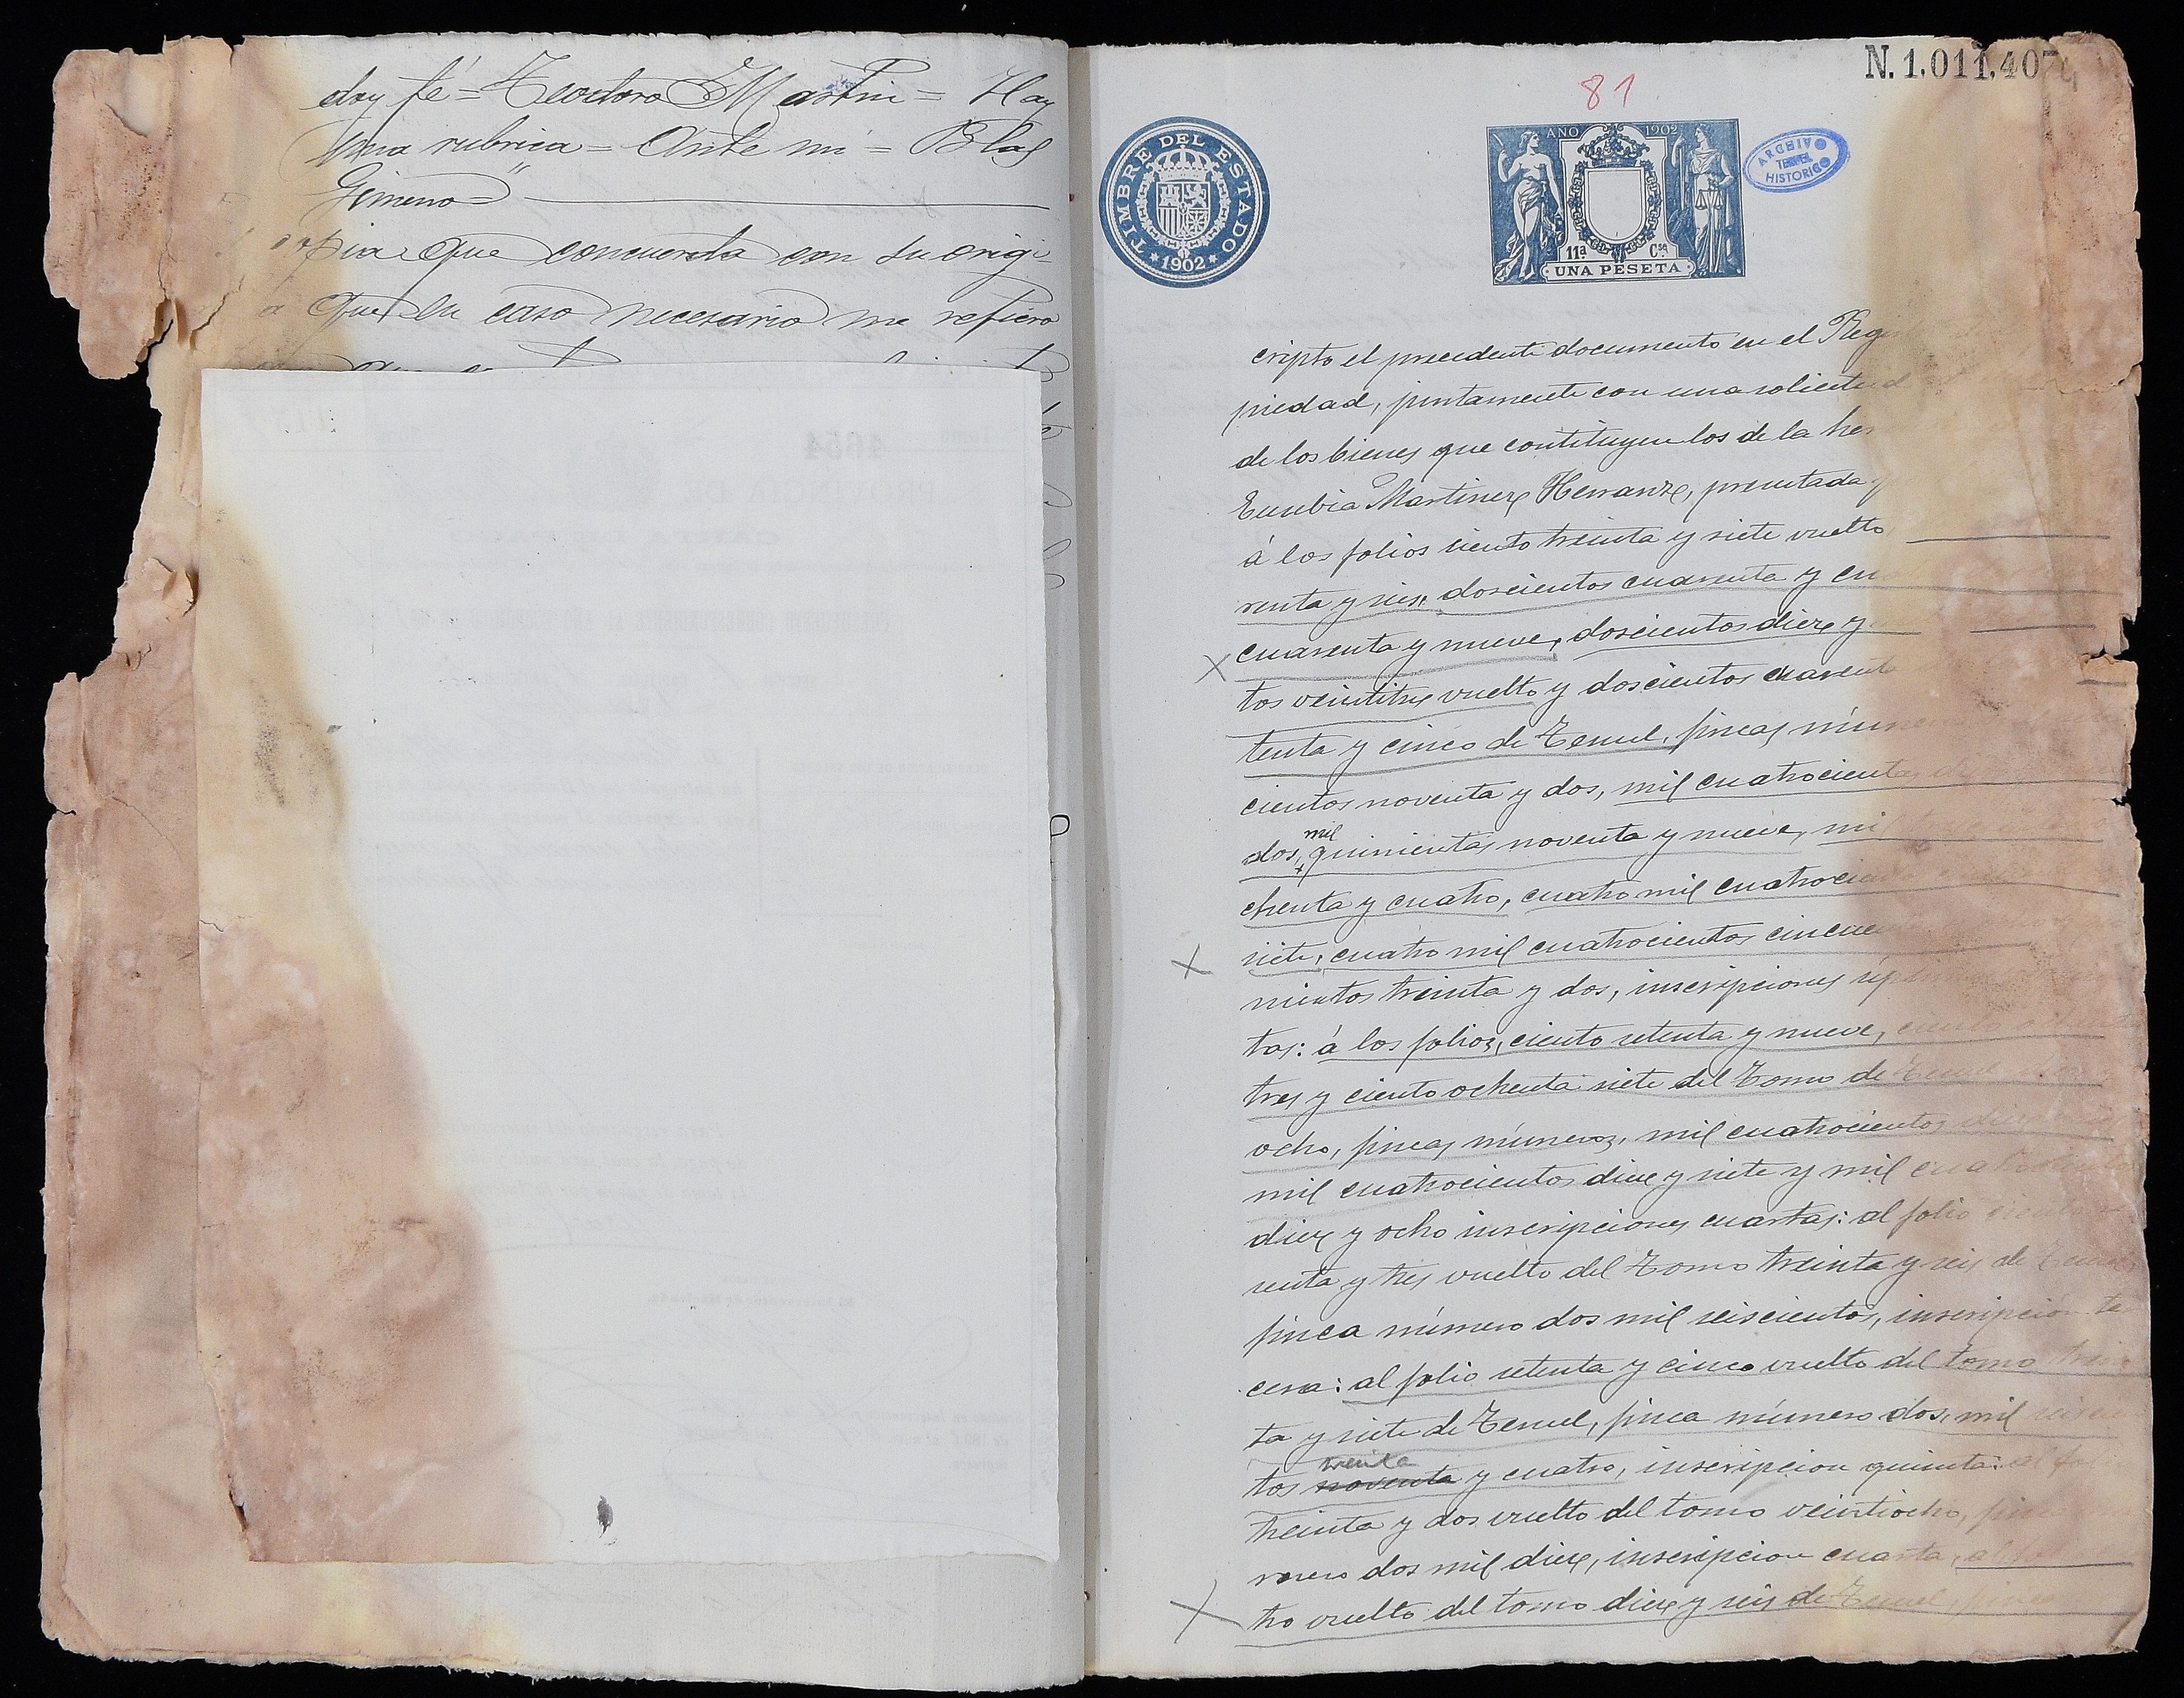 doy fé = Teodoro Martin = Hay
una rubrica = Ante mi = Blas
Gimeno"
copia que concuerda con su origi-
á que en caso necesario me refiero
N.1.011.40
81
TIMBRE DEL ESTADO
*1902*
AÑO 1902
11ª Cse
UNA PESETA
ARCHIVO
TERUEL
HISTORICO
cripto el precedente documento en el Reg
piedad, juntamente con una solicitud
de los bienes que contituyen los de la her
Eusebia Martinez Herranz, presentada
á los folios ciento treinta y siete vuelto
renta y seis, doscientos cuarenta y cu
cuarenta y nueve, doscientos diez y
tos veintitres vuelto y doscientos cuarent
tenta y cinco de Teruel, fincas núme
cientos noventa y dos, mil cuatrocientos
mil
dos, quinientas noventa y nueve, mil
chenta y cuatro, cuatro mil cuatrocien
siete, cuatro mil cuatrocientos cincuen
nientos treinta y dos, inscripciones sép
tas: á los folios, ciento setenta y nueve,
tres y ciento ochenta siete del Tomo de Teruel
ocho, fincas números, mil cuatrocientos
mil cuatrocientos diez y siete y mil cuatrocientos
diez y ocho inscripciones cuartas: al folio ciento
senta y tres vuelto del Tomo treinta y seis de Teruel
finca número dos mil seiscientos, inscripción te
cera: al folio setenta y cinco vuelto del tomo trein
ta y siete de Teruel, finca número dos, mil seiscien
treinta
tos noventa y cuatro, inscripcion quinta: al fo
treinta y dos vuelto del tomo veintiocho, finca
mero dos mil diez, inscripcion cuarta, al
tro vuelto del tomo diez y seis de Teruel, finca